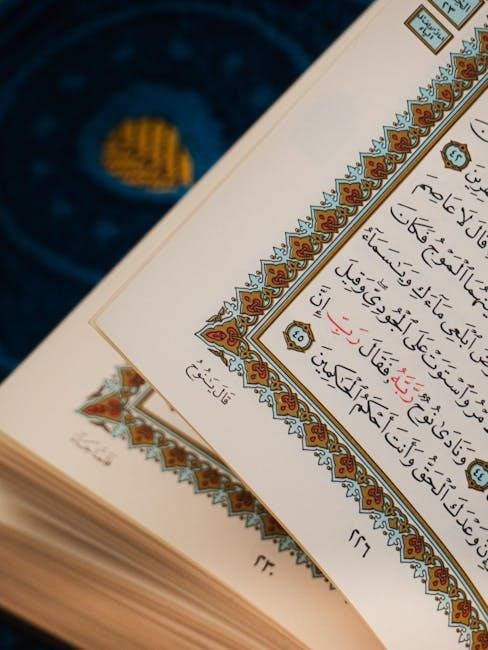 ٤٢
قَالَ لَا عَاصِمَ
ٱلْمَوْجُ فَكَانَ
ٱبْلَعِى مَآءَكِ وَيَٰسَمَآءُ
وَٱسْتَوَتْ عَلَى ٱلْجُودِىِّ ۖ وَقِيلَ
٤٤ وَنَادَىٰ نُوحٌ رَّبَّهُۥ فَقَالَ رَبِّ إِنَّ
وَعْدَكَ ٱلْحَقُّ وَأَنتَ أَحْكَمُ ٱلْحَٰكِمِينَ ٤٥
قَالَ يَٰنُوحُ
٢٢٦
٢٣٠